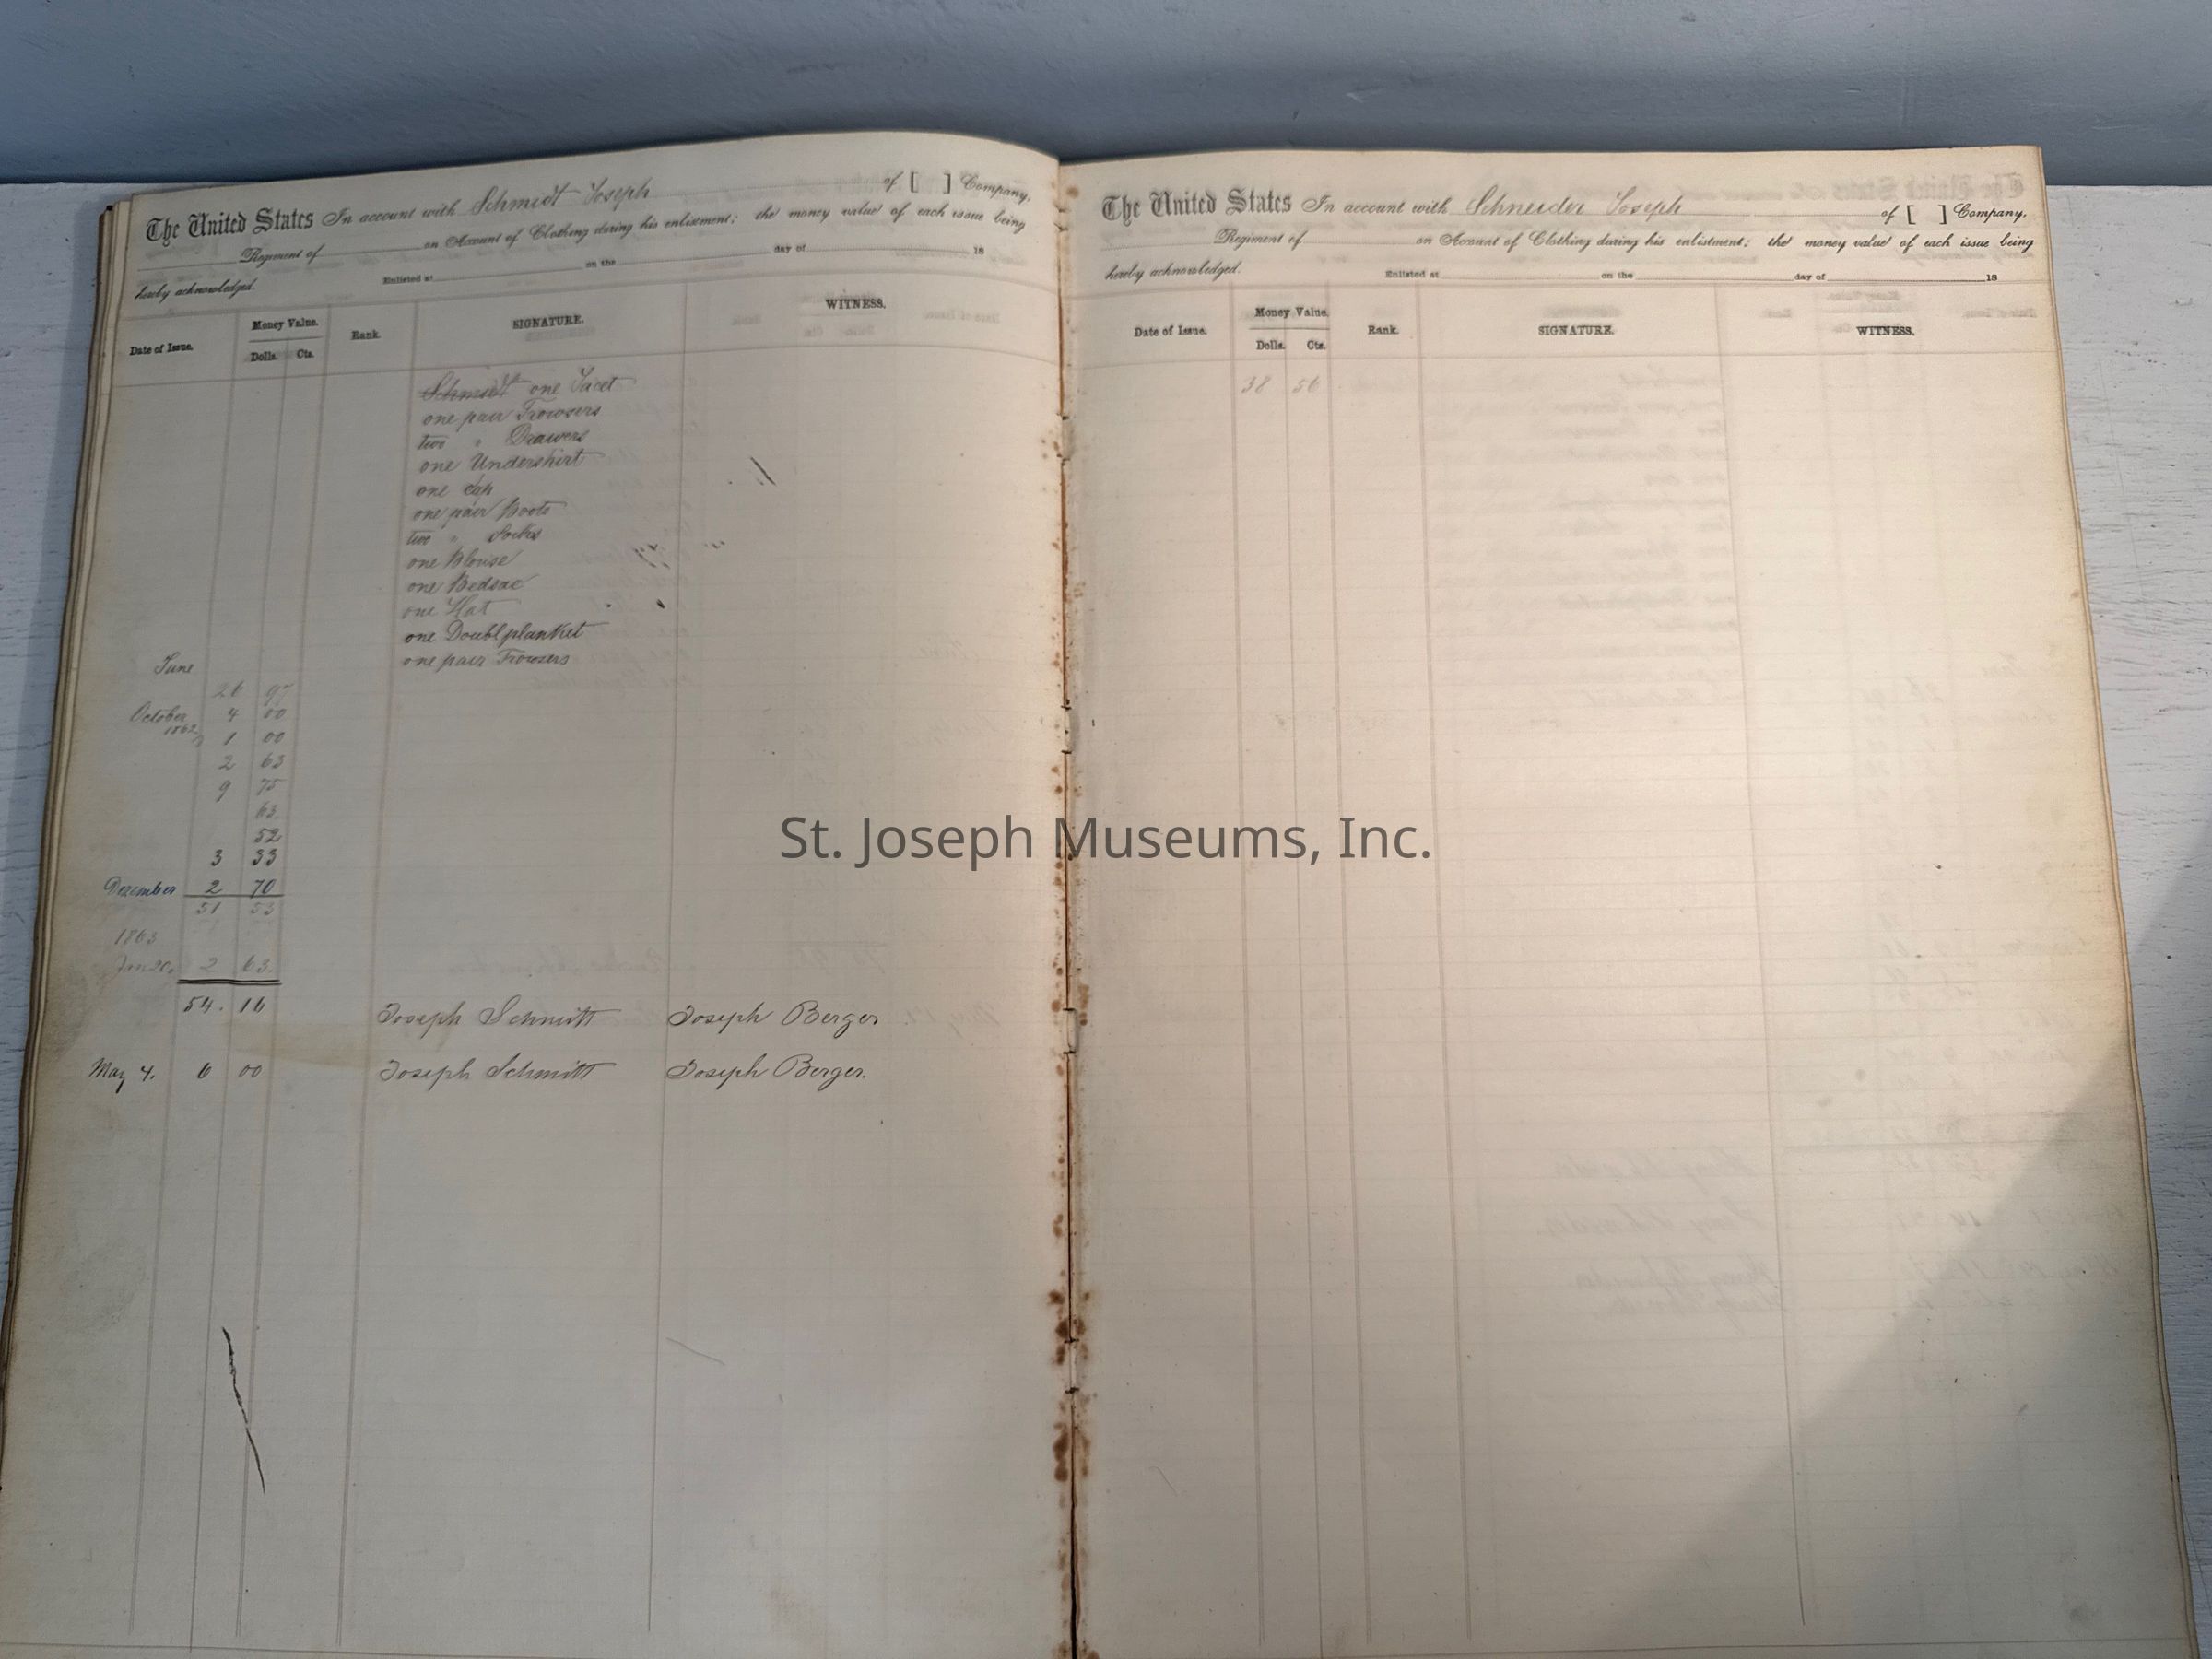 The United States In account with Schmidt Joseph of [ ] Company,
Regiment of on Account of Clothing during his enlistment; the money value of each issue being
hereby acknowledged. Enlisted at on the day of 18
Date of Issue. Money Value. Dolls. Cts. Rank. SIGNATURE. WITNESS.
Schmidt one Jacet
one pair Trowsers
two " Drawers
one Undershirt
one cap
one pair Boots
two " Socks
one Blouse
one Bedsac
one Hat
one Doublplanket
one pair Trowsers
June
26 97
October 4 00
1862 1 00
2 63
9 75
63
52
3 33
December 2 70
51 53
1863
Jan 20. 2 63
54. 16 Joseph Schmitt Joseph Berger
May 4. 6 00 Joseph Schmitt Joseph Berger.
The United States In account with Schneider Joseph of [ ] Company,
Regiment of on Account of Clothing during his enlistment; the money value of each issue being
hereby acknowledged. Enlisted at on the day of 18
Date of Issue. Money Value. Dolls. Cts. Rank. SIGNATURE. WITNESS.
38 56
St. Joseph Museums, Inc.